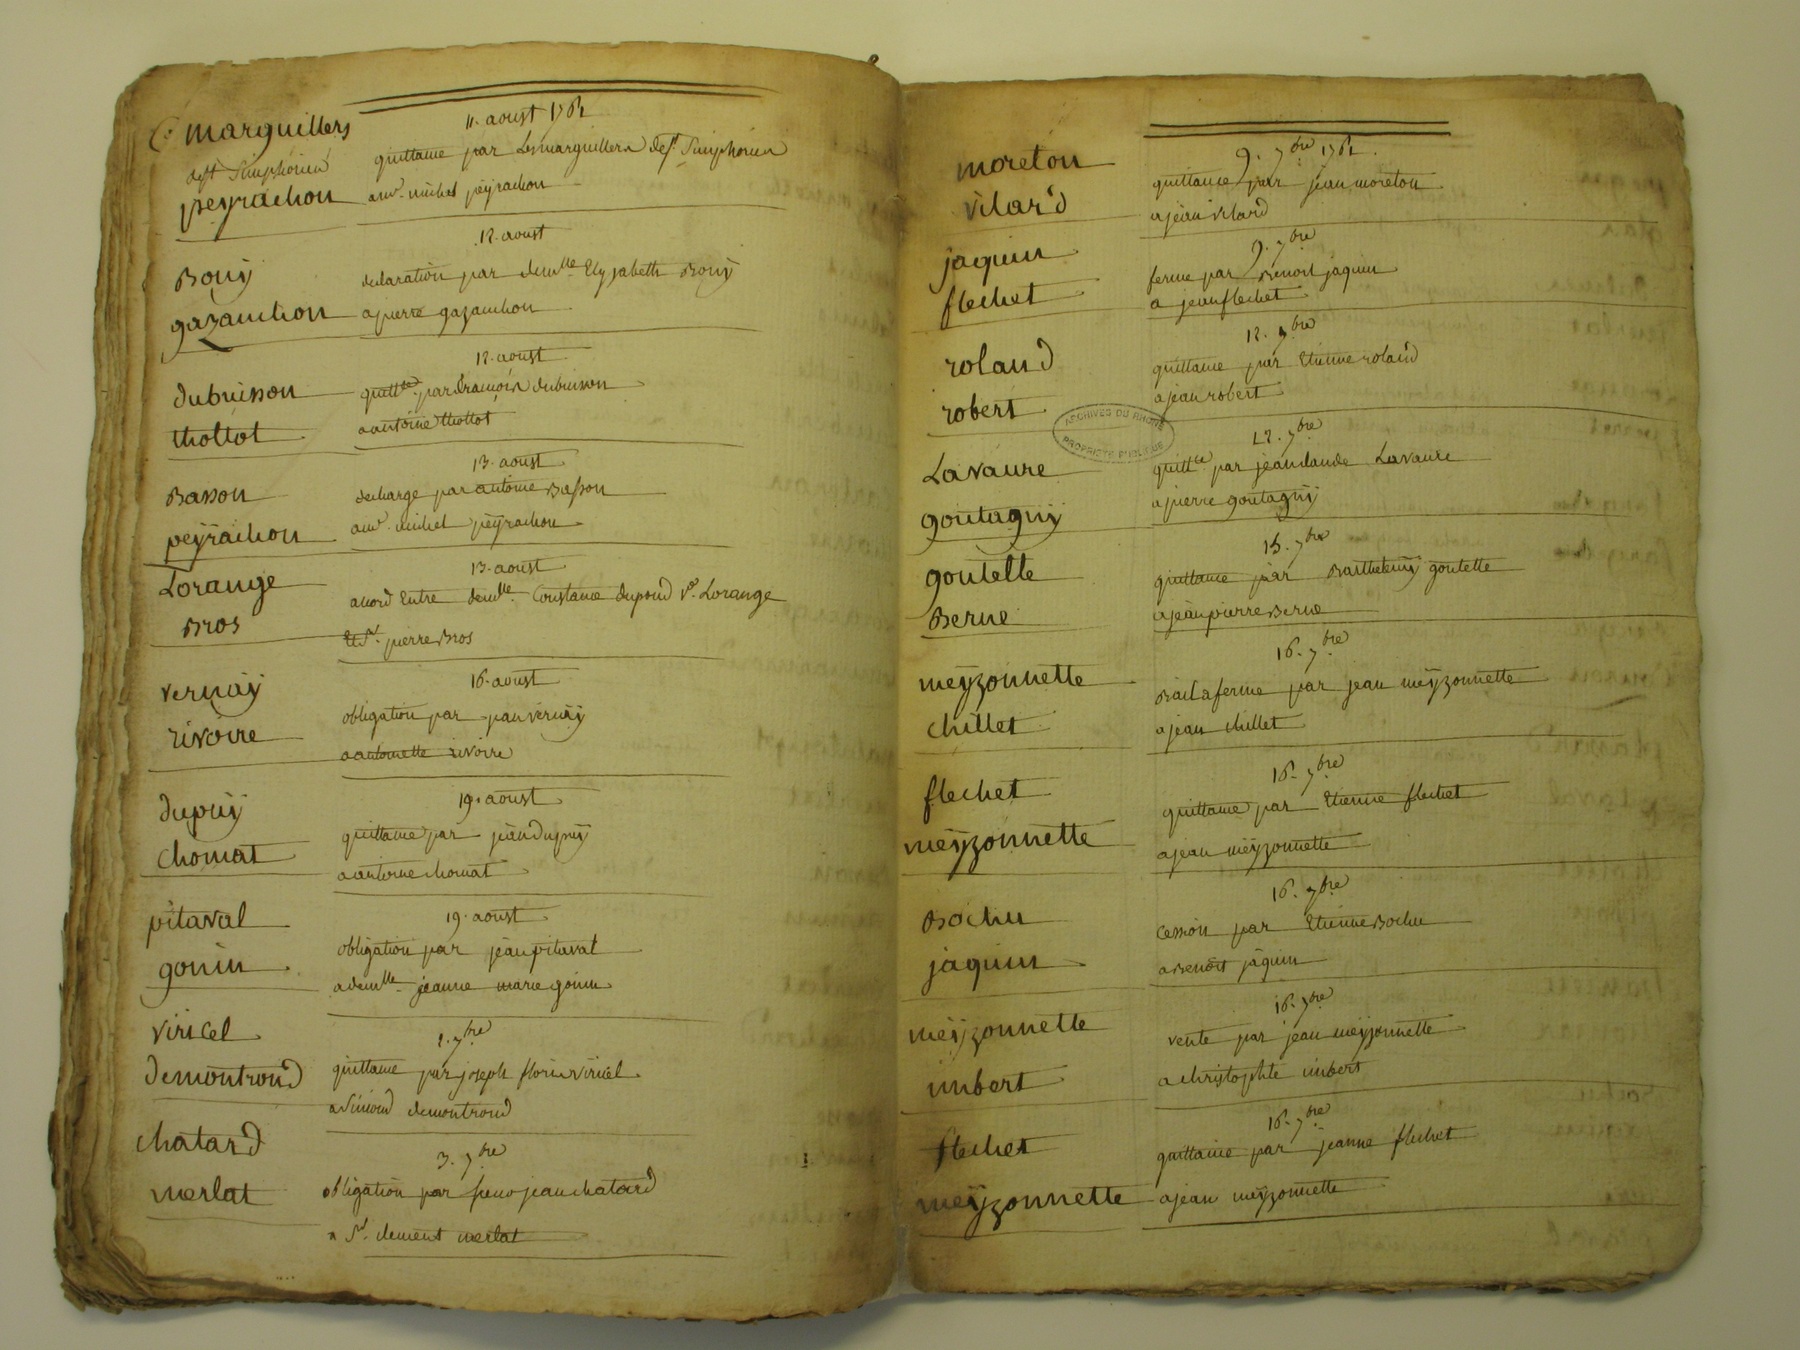 marguillers
dest Simphorien
peyrachon
11. aoust 1762
quittance par Les marguillers de st Simphorien
au sr. michel peyrachon
Bouy
gazanchon
12. aoust
declaration par demlle Elyzabeth Bouy
a pierre gazanchon
dubuisson
thollot
12. aoust
quittce par francois dubuisson
a antoine thollot
Basson
peyrachon
13. aoust
decharge par antoine Basson
au sr. michel peyrachon
Lorange
Bros
13. aoust
accord Entre demlle Constance dupond ve. Lorange
Et sr. pierre Bros
vernay
rivoire
16. aoust
obligation par vernay
a antoinette rivoire
dupuy
chomat
19. aoust
quittance par jean dupuy
a antoine chomat
pitaval
gonin
19. aoust
obligation par jean pitaval
a demlle jeanne marie gonin
viricel
demontrond
1. 7bre
quittance par joseph floris viricel
a simond demontrond
chatard
merlat
3. 7bre
obligation par jean chatard
a sr. clement merlat
moreton
vilard
9. 7bre 1762.
quittance par jean moreton
a jean vilard
jaquin
flechet
9. 7bre
ferme par Benoit jaquin
a jean flechet
roland
robert
12. 7bre
quittance par Etienne roland
a jean robert
ARCHIVES DU RHÔNE
PROPRIÉTÉ PUBLIQUE
Lavaure
goutagny
12. 7bre
quittce par jean claude Lavaure
a pierre goutagny
goutelle
Berne
15. 7bre
quittance par Barthelemy goutelle
a jean pierre Berne
meyzonnette
chillet
16. 7bre
Bail a ferme par jean meyzonnette
a jean chillet
flechet
meyzonnette
16. 7bre
quittance par Etienne flechet
a jean meyzonnette
Bochu
jaquin
16. 7bre
cession par Etienne Bochu
a Benoit jaquin
meyzonnette
imbert
16. 7bre
vente par jean meyzonnette
a christophle imbert
flechet
meyzonnette
16. 7bre
quittance par jeanne flechet
a jean meyzonnette